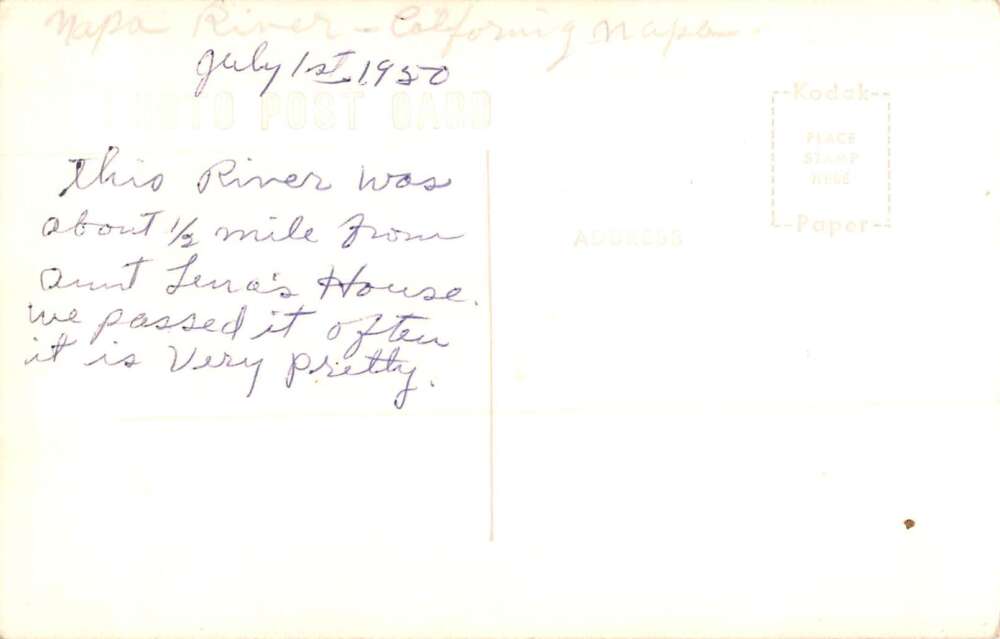 Napa River - California Napa
July 1st 1950
PHOTO POST CARD
This River was
about 1/2 mile from
aunt Lena's House.
we passed it often
it is Very pretty.
Kodak
PLACE
STAMP
HERE
Paper
ADDRESS